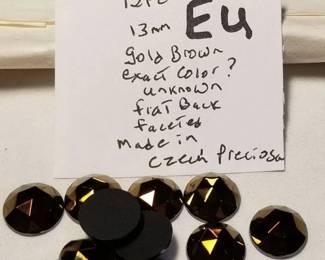 12pc
13mm EU
Gold Brown
exact color?
unknown
flat Back
faceted
made in
Czech Preciosa